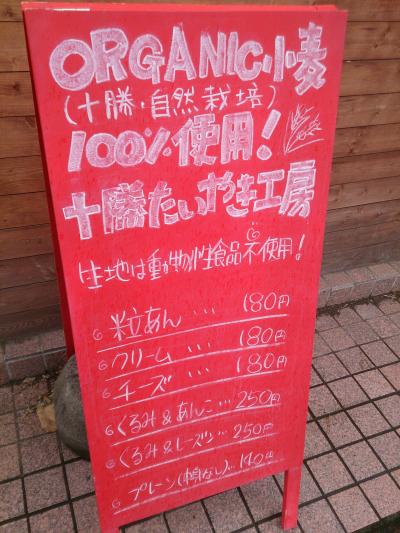 ORGANIC小麦
(十勝・自然栽培)
100%使用!
十勝たいやき工房
生地は動物性食品不使用!
粒あん … 180円
クリーム … 180円
チーズ … 180円
くるみ&あんこ … 250円
くるみ&レーズン … 250円
プレーン(餡なし) … 140円